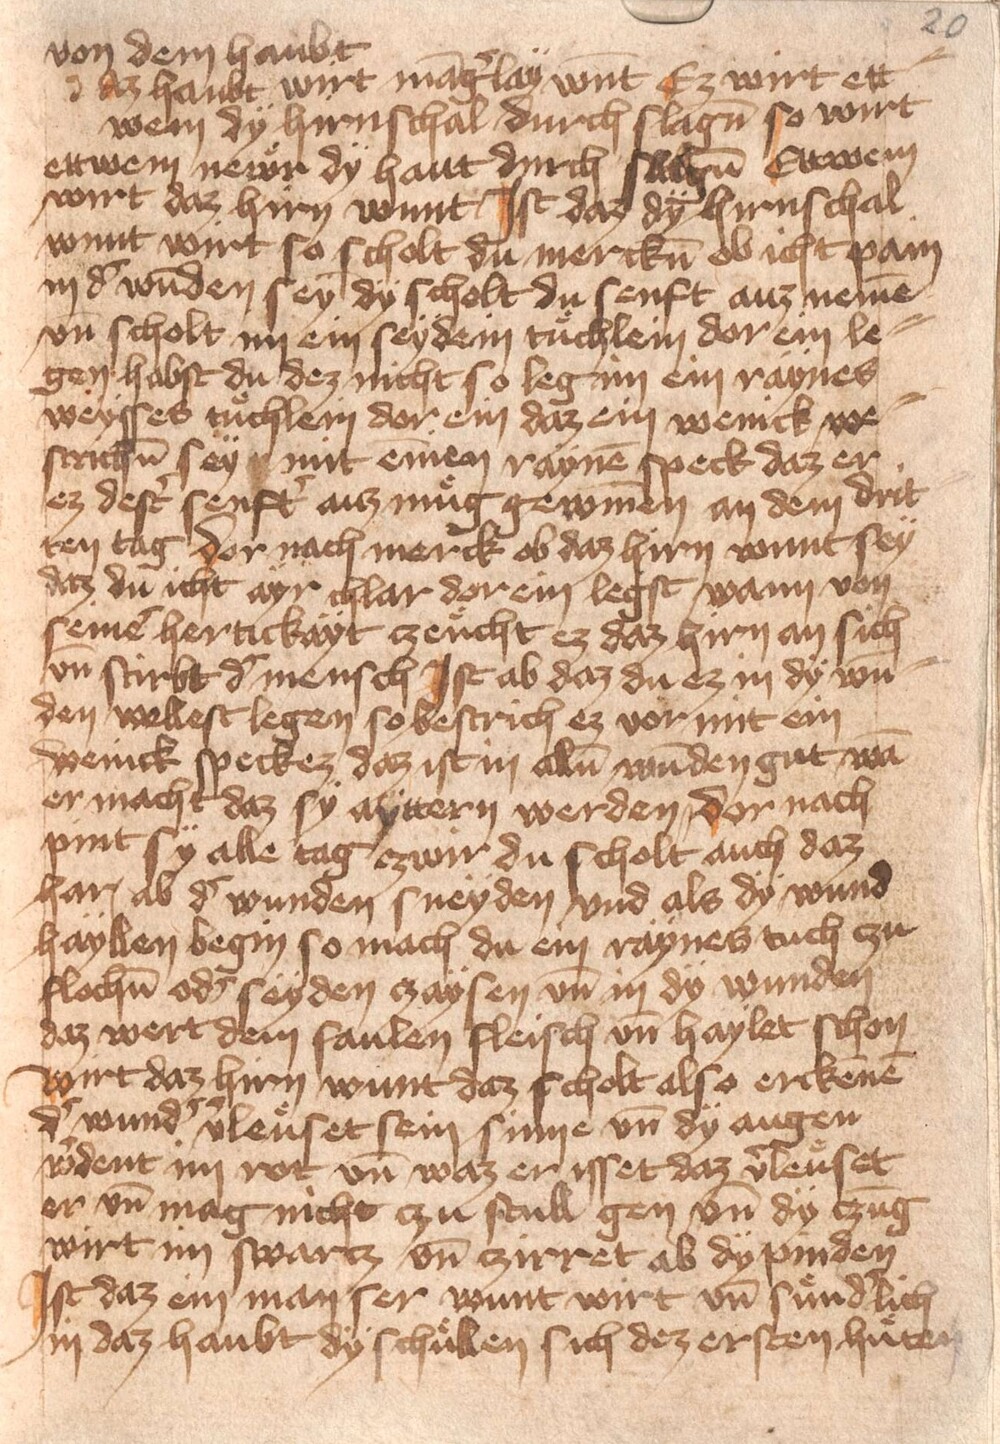 20
von dem haubt
daz haubt wirt māg͛lay wūt Ez wirt ett⸗
wem dÿ hirnschal durch slagn̄ so wirt
ettwem newͦr dÿ haut durch slagn̄ Ettwem
wirt daz hirn wunt Ist daz dÿ hirnschal
wunt wirt so scholt du merckn̄ ob icht pain
in d͛ wūden seÿ dÿ scholt du senft auz nemē
vn̄ scholt im ein seÿdein tuͤchlein dor ein le⸗
gen habst du dez nicht so leg im ein raÿnes
weÿsses tuͤchlein dor ein daz ein wenick we⸗
strichn̄ seÿ mit einen raÿnē speck daz er
ez dest͛ senft͛ auz muͤg gewinen an dem drit⸗
ten tag Dor nach merck ob daz hirn wunt seÿ
daz du icht aÿr chlar dor ein legst wann von
seine͛ hertickaÿt czeuͤcht ez daz hirn an sich
vn̄ stirbt d͛ mensch Ist ab daz du ez in dÿ wū⸗
den wellest legen so bestrich ez vor mit ein
wenick speckez daz ist in alln̄ wūden gut wā
er macht daz sÿ aÿttern werden Dor nach
pint sÿ alle tag czwir du scholt auch daz
har ab d͛ wunden sneÿden vnd als dÿ wund
haÿllen begin so mach du ein raÿnes tuch czu
flochn̄ od͛ seÿden czaÿsen vn̄ in dÿ wunden
daz wert dem faulen fleisch vn̄ haylet schon
wirt daz hirn wunt daz scholt also erckēnē
d͛ wund͛ v͛leuͤset sein sinne vn̄ dÿ augen
w͛dent im rot vn̄ waz er isset daz v͛leuͤset
er vn̄ mag nicht czu stull gen vn̄ dÿ czūg
wirt im swarcz vn̄ czirret ab dÿ pinden
Ist daz ein man ser wunt wirt vn̄ suͤnd͛lich
in daz haubt dÿ schuͤllen sich dez ersten huͤten